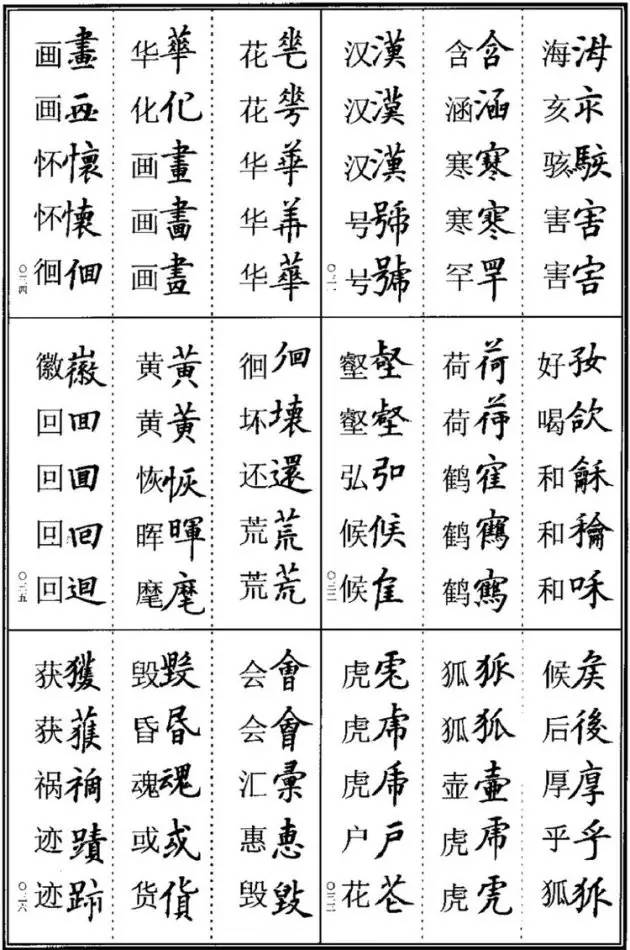 海
亥
骇駭
害害
害害
含含
涵涵
寒寒
寒寒
罕罕
汉漢
汉漢
汉漢
号號
号號
〇二一
好
喝
和龢
和
和咊
荷荷
荷荷
鹤
鹤
鹤
壑壑
壑壑
弘
候候
候
〇二二
候矦
后後
厚厚
乎乎
狐狐
狐狐
狐狐
壶壷
虎
虎
虎
虎
虎
户戸
花芲
〇二三
花
花
华華
华
华華
华華
化化
画畫
画畵
画畫
画畫
画
怀懷
怀懐
徊徊
〇二四
徊徊
坏壊
还還
荒荒
荒荒
黄黄
黄黄
恢恢
晖暉
麾麾
徽徽
回囬
回囘
回回
回迴
〇二五
会會
会會
汇彙
惠恵
毁毀
毁毀
昏昬
魂魂
或或
货貨
获獲
获
祸禍
迹蹟
迹跡
〇二六